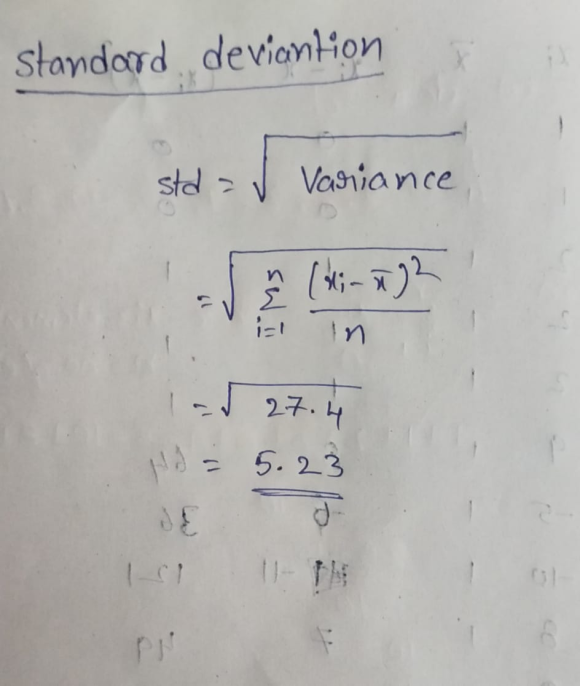 standard deviantion
std = √ Variance
= √ n Σ i=1 (xi - x̄)² / n
= √ 27.4
= 5.23